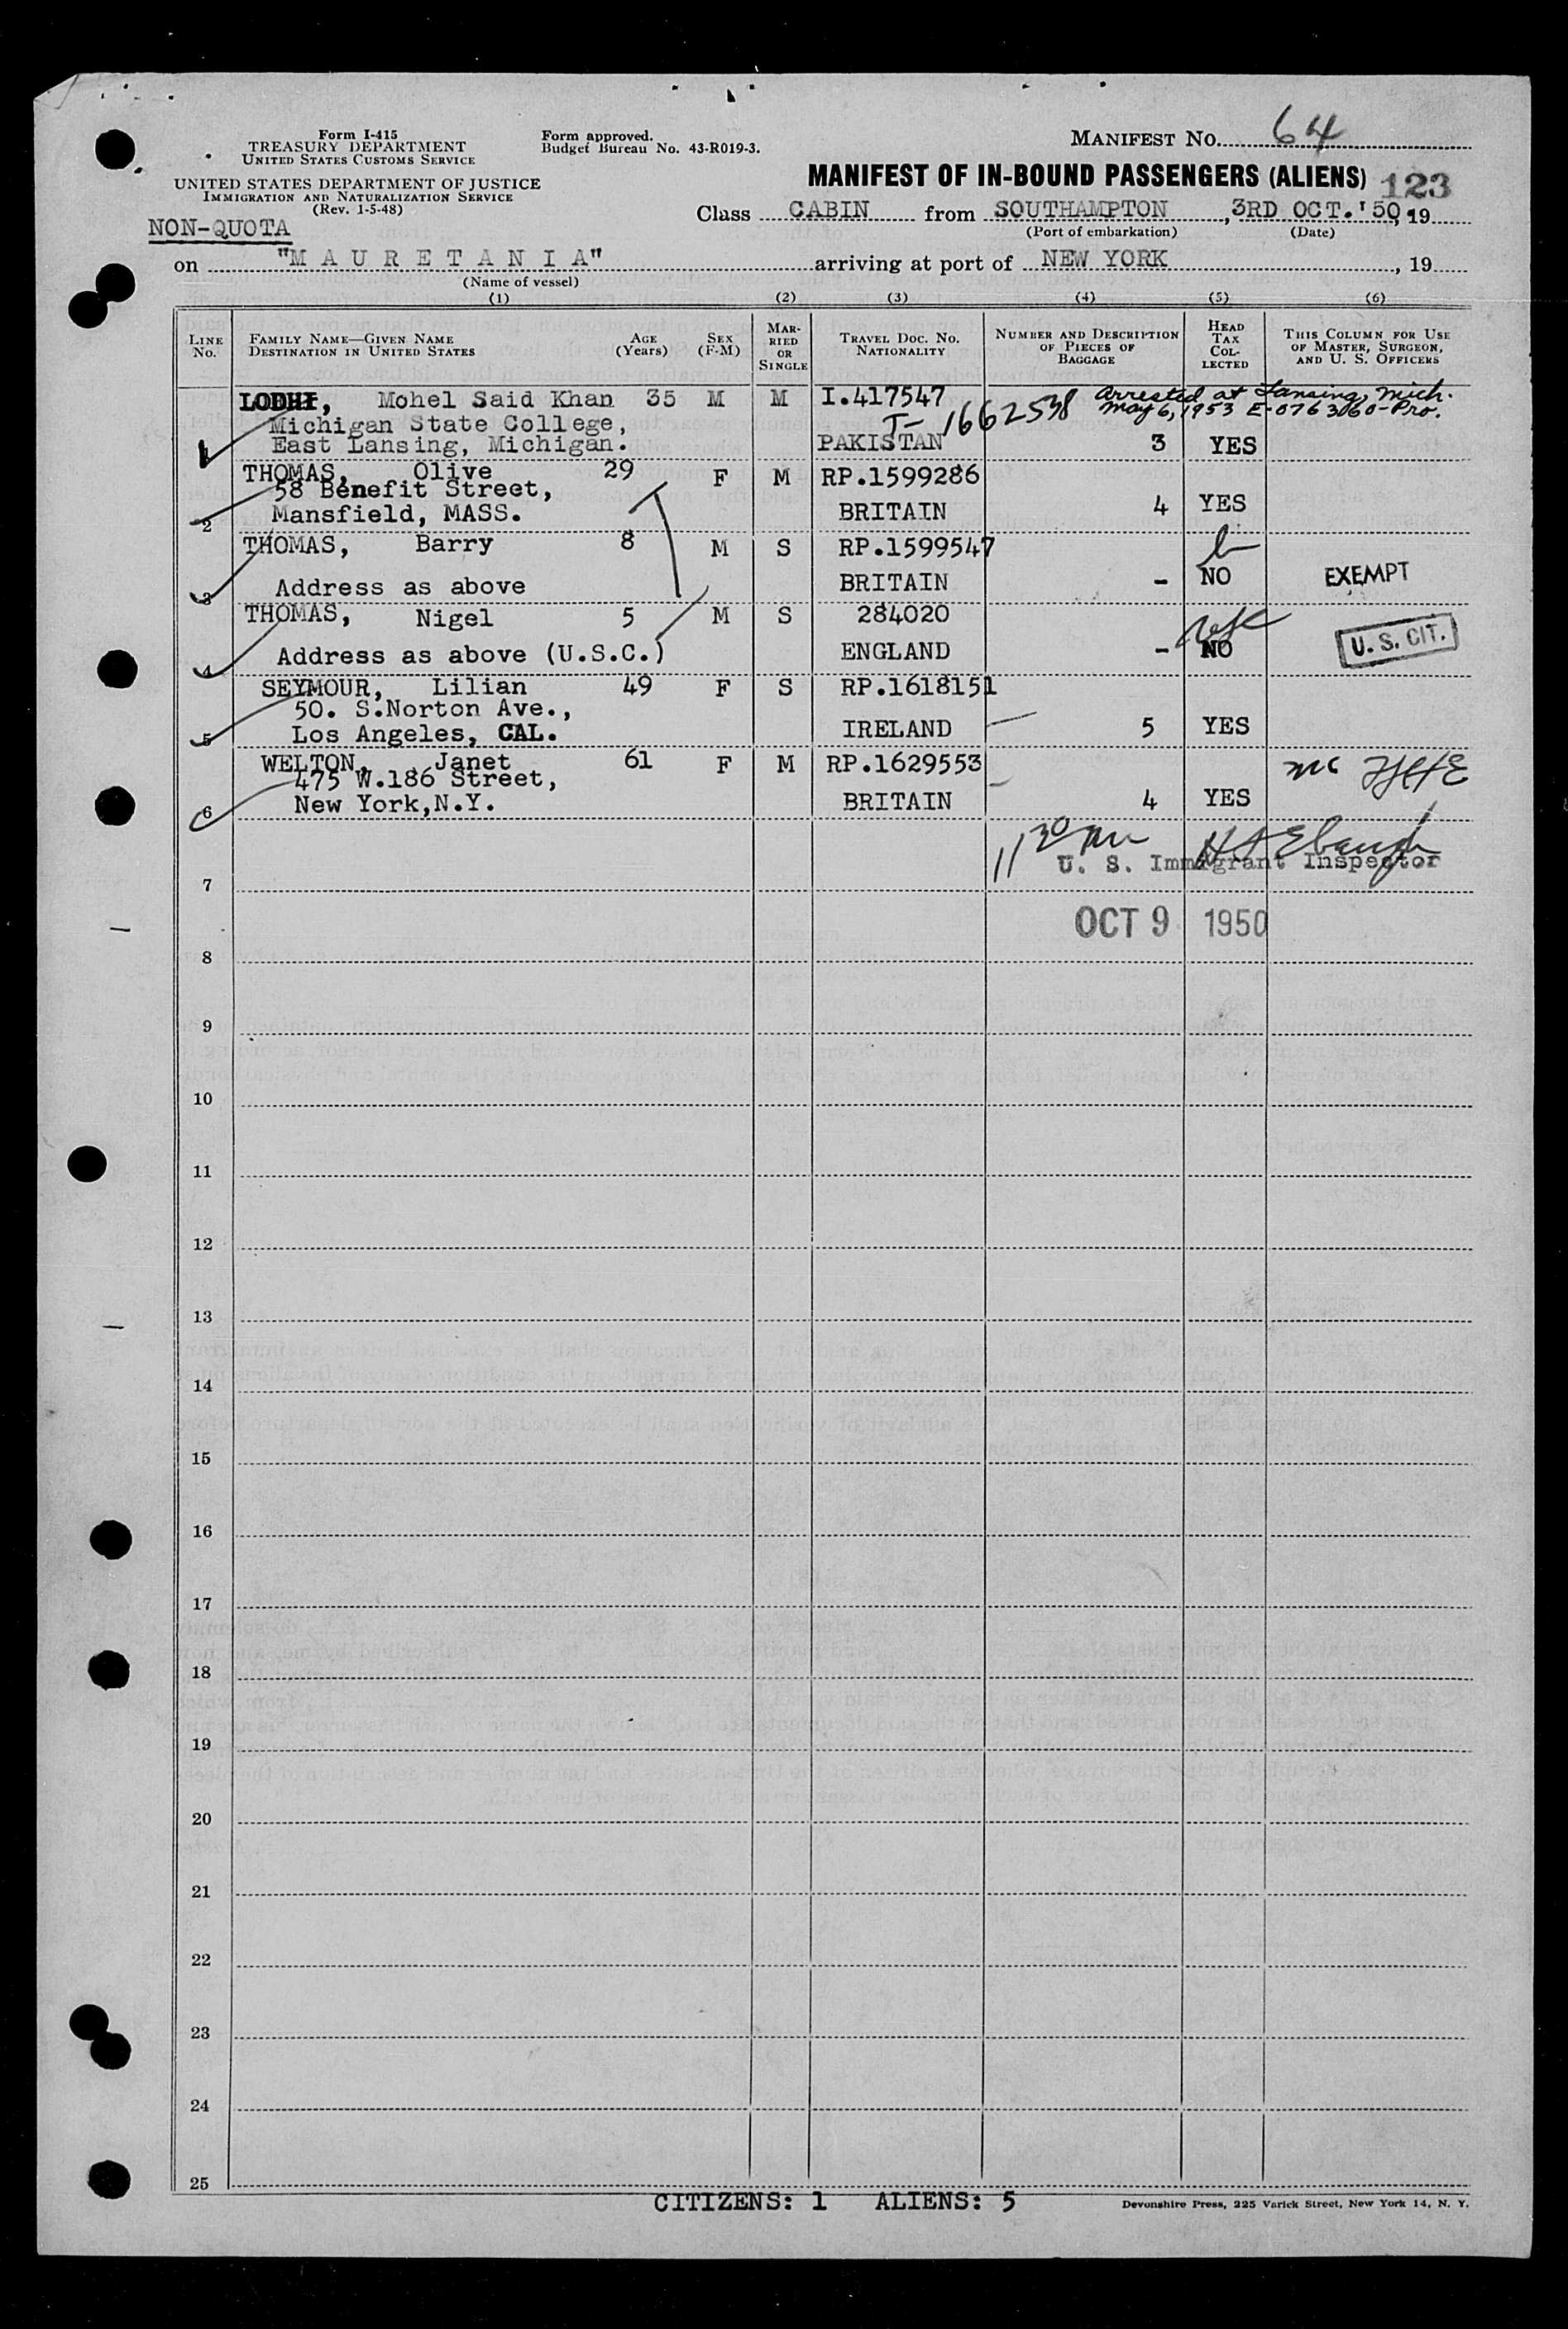 Form I-415
TREASURY DEPARTMENT
UNITED STATES CUSTOMS SERVICE
UNITED STATES DEPARTMENT OF JUSTICE
IMMIGRATION AND NATURALIZATION SERVICE
(Rev. 1-5-48)
Form approved.
Budget Bureau No. 43-R019-3.
MANIFEST NO. 64
MANIFEST OF IN-BOUND PASSENGERS (ALIENS) 123
NON-QUOTA
Class CABIN from SOUTHAMPTON, 3RD OCT.'50, 19
(Port of embarkation) (Date)
on "MAURETANIA" arriving at port of NEW YORK, 19
(Name of vessel)
(1) (2) (3) (4) (5) (6)
LINE No. FAMILY NAME—GIVEN NAME DESTINATION IN UNITED STATES AGE (Years) SEX (F-M) MARRIED OR SINGLE TRAVEL DOC. NO. NATIONALITY NUMBER AND DESCRIPTION OF PIECES OF BAGGAGE HEAD TAX COLLECTED THIS COLUMN FOR USE OF MASTER, SURGEON, AND U. S. OFFICERS
LODHI, Mohel Said Khan 35 M M I.417547 Arrested at Lansing, Mich.
Michigan State College, T-1662538 May 6, 1953 E-0763060-Pro.
1 East Lansing, Michigan. PAKISTAN 3 YES
THOMAS, Olive 29 F M RP.1599286
58 Benefit Street,
2 Mansfield, MASS. BRITAIN 4 YES
THOMAS, Barry 8 M S RP.1599547
3 Address as above BRITAIN - NO EXEMPT
THOMAS, Nigel 5 M S 284020
4 Address as above (U.S.C.) ENGLAND - NO U. S. CIT.
SEYMOUR, Lilian 49 F S RP.1618151
50. S.Norton Ave.,
5 Los Angeles, CAL. IRELAND 5 YES
WELTON, Janet 61 F M RP.1629553
475 W.186 Street,
6 New York,N.Y. BRITAIN 4 YES
11 30 am
7 U. S. Immigrant Inspector
OCT 9 1950
8
9
10
11
12
13
14
15
16
17
18
19
20
21
22
23
24
25
CITIZENS: 1 ALIENS: 5
Devonshire Press, 225 Varick Street, New York 14, N. Y.